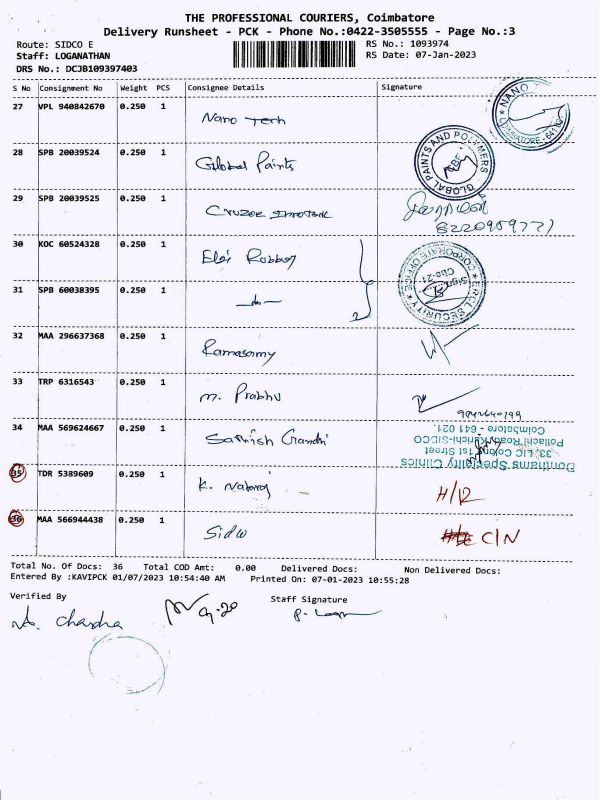 THE PROFESSIONAL COURIERS, Coimbatore
Delivery Runsheet - PCK - Phone No.:0422-3505555 - Page No.:3
Route: SIDCO E RS No.: 1093974
Staff: LOGANATHAN RS Date: 07-Jan-2023
DRS No.: DCJB109397403
S No Consignment No Weight PCS Consignee Details Signature
27 VPL 940842670 0.250 1 Nano Tech NANO COIMBATORE - 641 02
28 SPB 20039524 0.250 1 Global Paints GLOBAL PAINTS AND POLYMERS CBE
29 SPB 20039525 0.250 1 Cruzoe
8220909771
30 KOC 60524328 0.250 1 Elgi Rubber
31 SPB 60038395 0.250 1 -do- ERCL SECURITY CORPORATE OFFICE Sign. Cbe-21
32 MAA 296637368 0.250 1 Ramasamy
33 TRP 6316543 0.250 1 M. Prabhu
9842640199
34 MAA 569624667 0.250 1 Sathish Gandhi
Speciality Clinics
33, LIC Colony, 1st Street
Pollachi Road, Kurichi-SIDCO
Coimbatore - 641 021.
35 TDR 5389609 0.250 1 K. Nataraj
36 MAA 566944438 0.250 1 Sidw C/N
Total No. Of Docs: 36 Total COD Amt: 0.00 Delivered Docs: Non Delivered Docs:
Entered By :KAVIPCK 01/07/2023 10:54:40 AM Printed On: 07-01-2023 10:55:28
Verified By Staff Signature
Chandra